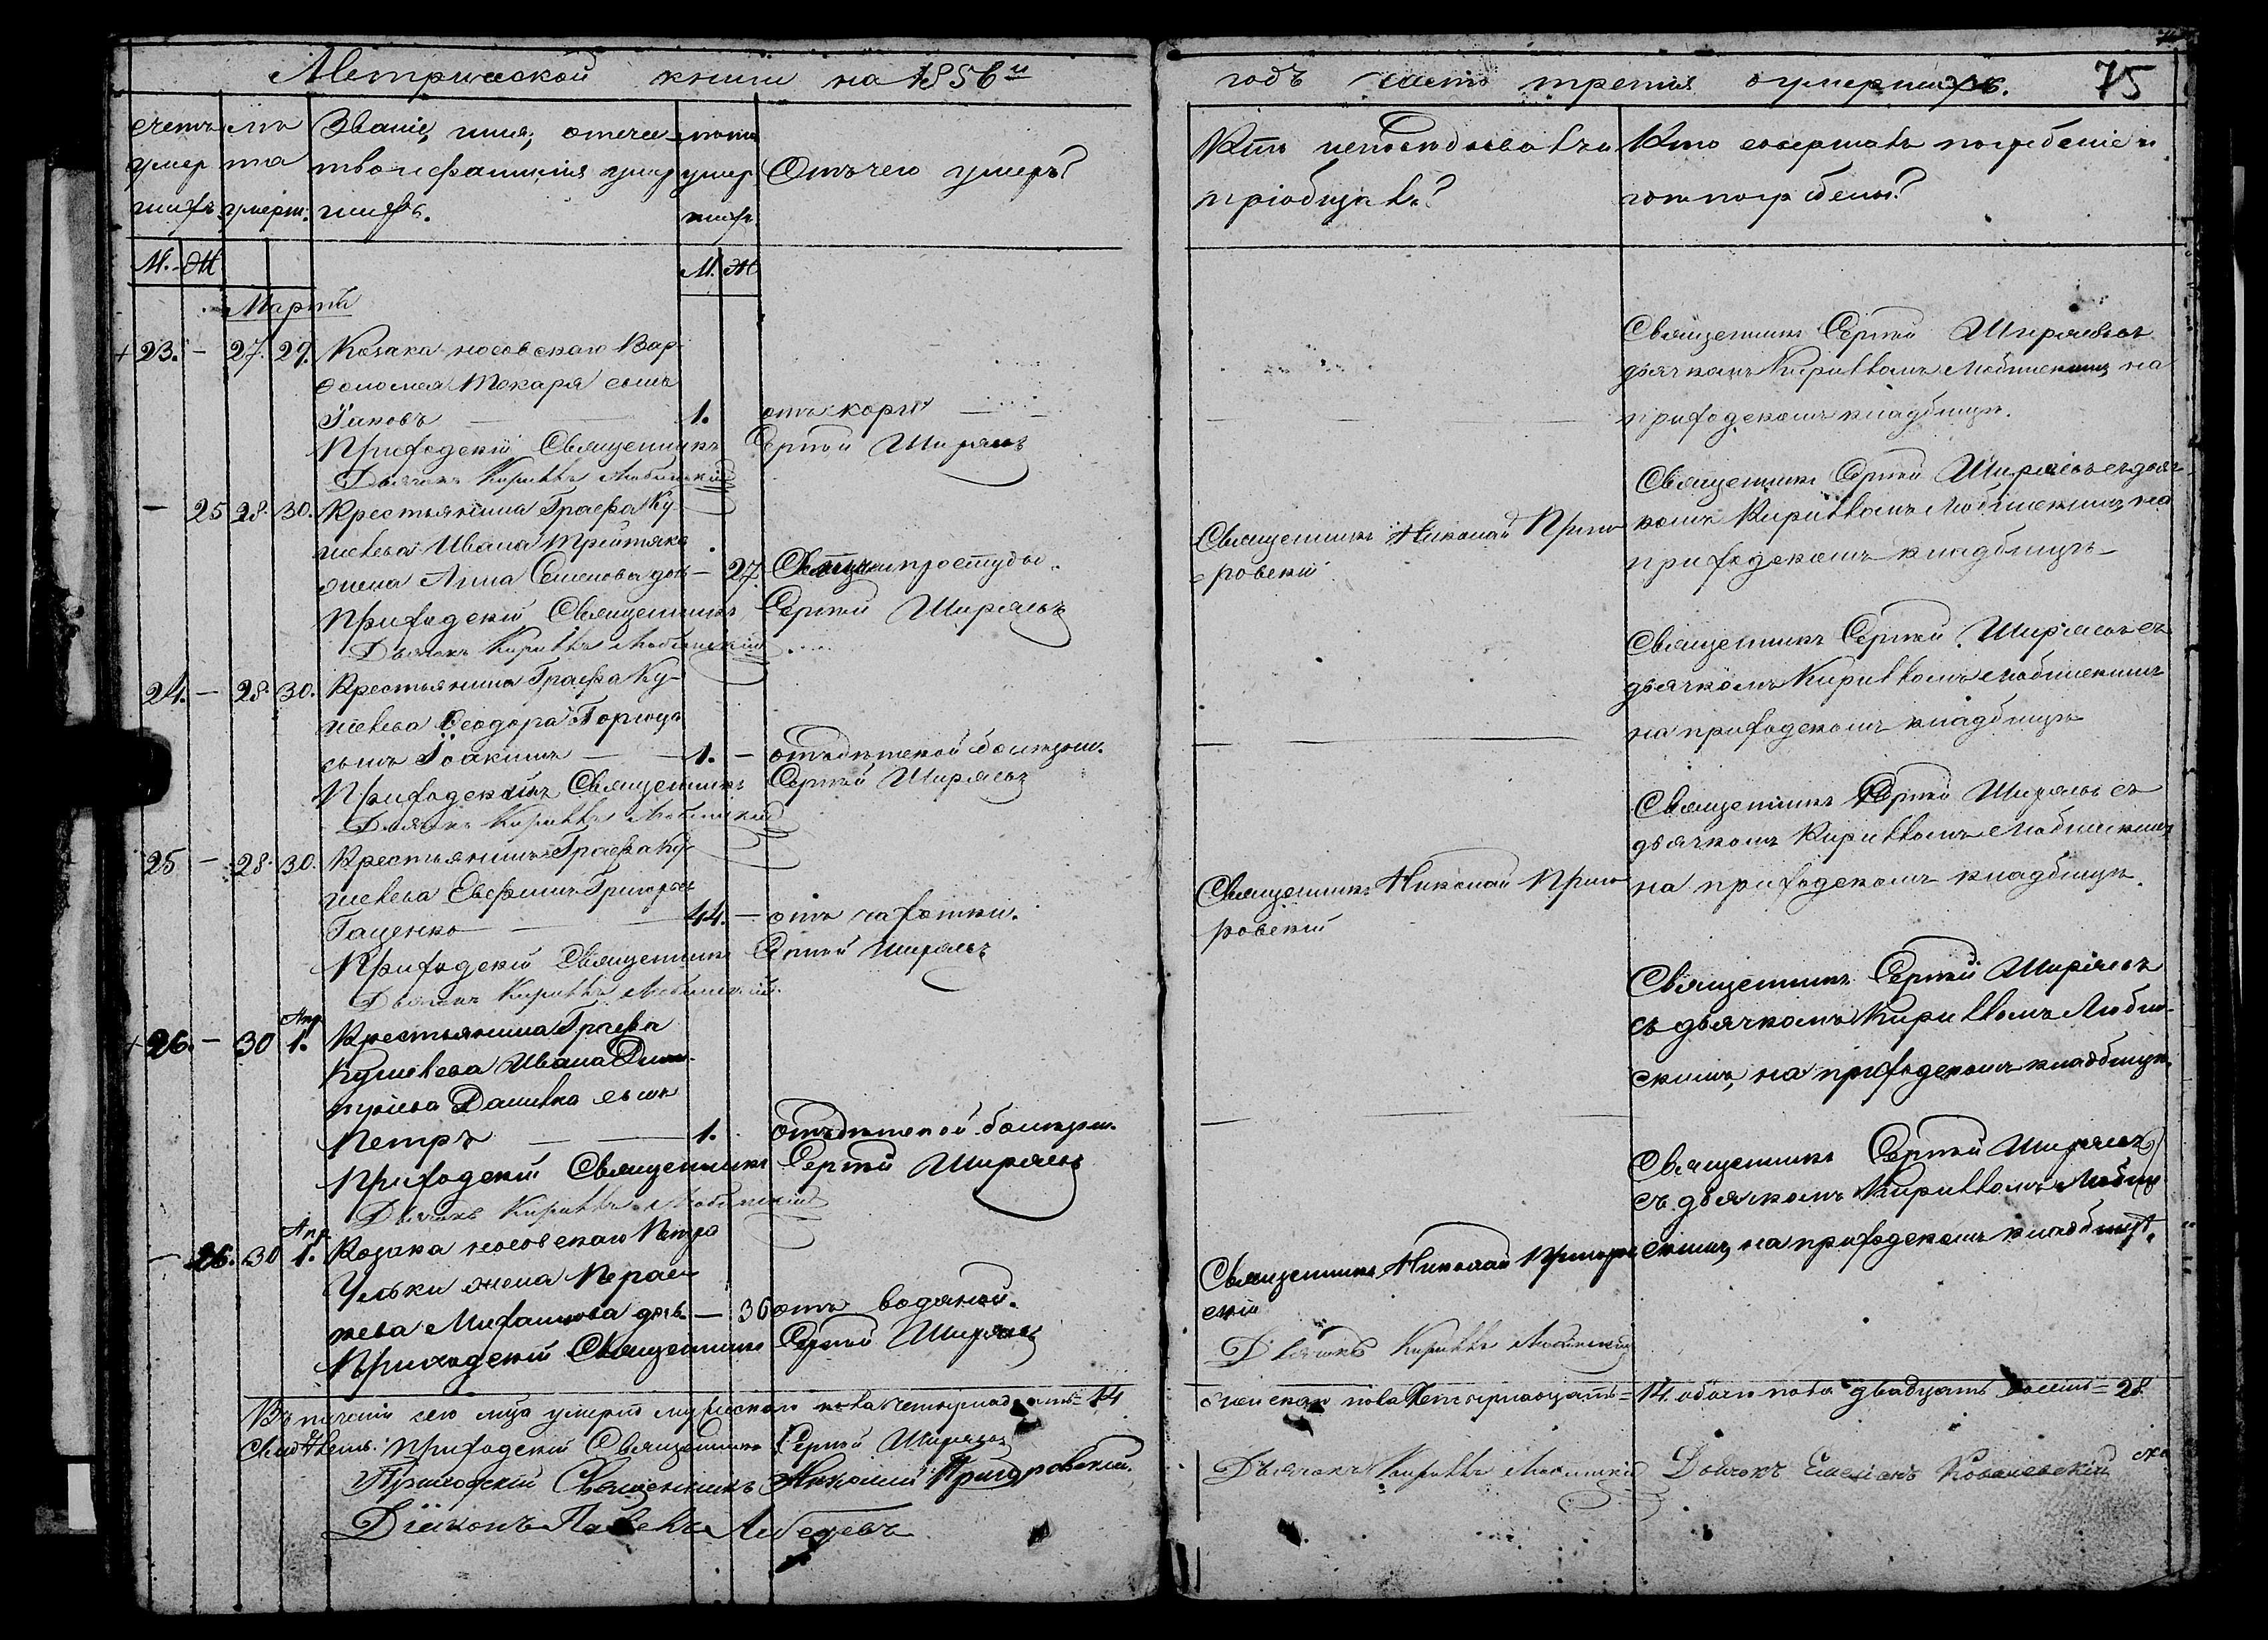 Метрической книги на 1856й
годъ часть третія о умершихъ. 75
счетъ умершихъ.
мѣ
та
умерш.
Званіе, имя, отече
ство и фамилія умер
шихъ.
лета
умер
шихъ
Отъ чего умеръ?
Кто исповѣдывалъ и
пріобщалъ?
Кто совершалъ погребеніе и
гдѣ погребены?
М. Ж
М. Ж
Мартъ
23. - 27. 29. Козака носовскаго Вар
ѳоломея Токаря сынъ
Іаковъ 1. отъ кори
Приходскій Священникъ Сергѣй Ширяевъ
Дьячокъ Кириллъ Любинскій
Священникъ Сергѣй Ширяевъ съ
дьячкомъ Кирилломъ Любинскимъ, на
приходскомъ кладбищѣ.
- 25 28. 30. Крестьянина Графа Ку
шелева Ивана Третяка
жена Анна Семенова дочь - 27. простуды.
Приходскій Священникъ Сергѣй Ширяевъ
Дьячокъ Кириллъ Любинскій
Священникъ Николай Приго
ровскій
Священникъ Сергѣй Ширяевъ съ дьяч
комъ Кирилломъ Любинскимъ, на
приходскомъ кладбищѣ
24. - 28. 30. Крестьянина Графа Ку-
шелева Ѳеодора
сынъ Іоакимъ 1. - отъ дѣтской болѣзни.
Приходскій Священникъ Сергѣй Ширяевъ
Дьячокъ Кириллъ Любинскій
Священникъ Сергѣй Ширяевъ съ
дьячкомъ Кирилломъ Любинскимъ
на приходскомъ кладбищѣ
25 - 28. 30. Крестьянинъ Графа Ку
шелева Евфимъ Григорьевъ
Гаценко 44. - отъ чахотки.
Приходскій Священникъ Сергѣй Ширяевъ
Дьячокъ Кириллъ Любинскій
Священникъ Николай Приго
ровскій
Священникъ Сергѣй Ширяевъ съ
дьячкомъ Кирилломъ Любинскимъ
на приходскомъ кладбищѣ.
Апр
26. - 30 1. Крестьянина Графа
Кушелева Ивана Дими
тріева Данилка сынъ
Петръ 1. отъ дѣтской болѣзни.
Приходскій Священникъ Сергѣй Ширяевъ
Дьячокъ Кириллъ Любинскій
Священникъ Сергѣй Ширяевъ
съ дьячкомъ Кирилломъ Любин-
скимъ, на приходскомъ кладбищѣ.
Апр
- 26. 30 1. Козака носовскаго Петра
жена Парас
кева Михаилова дочь - 36 отъ водяной.
Приходскій Священникъ Сергѣй Ширяевъ
Священникъ Николай Пригоров
скій
Дьячокъ Кириллъ Любинскій
Священникъ Сергѣй Ширяевъ
съ дьячкомъ Кирилломъ Любин
скимъ, на приходскомъ кладбищѣ.
Въ теченіи сего мца умерло мужескаго пола четырнадцать = 14
женскаго пола четырнадцать = 14. обоего пола двадцать восемь = 28.
Приходскій Священникъ Сергѣй Ширяевъ
Приходскій Священникъ Николай Пригоровскій.
Діаконъ Павелъ Лебедевъ
Дьячокъ Кириллъ Любинскій Дьячокъ Емеліанъ Ковалевскій